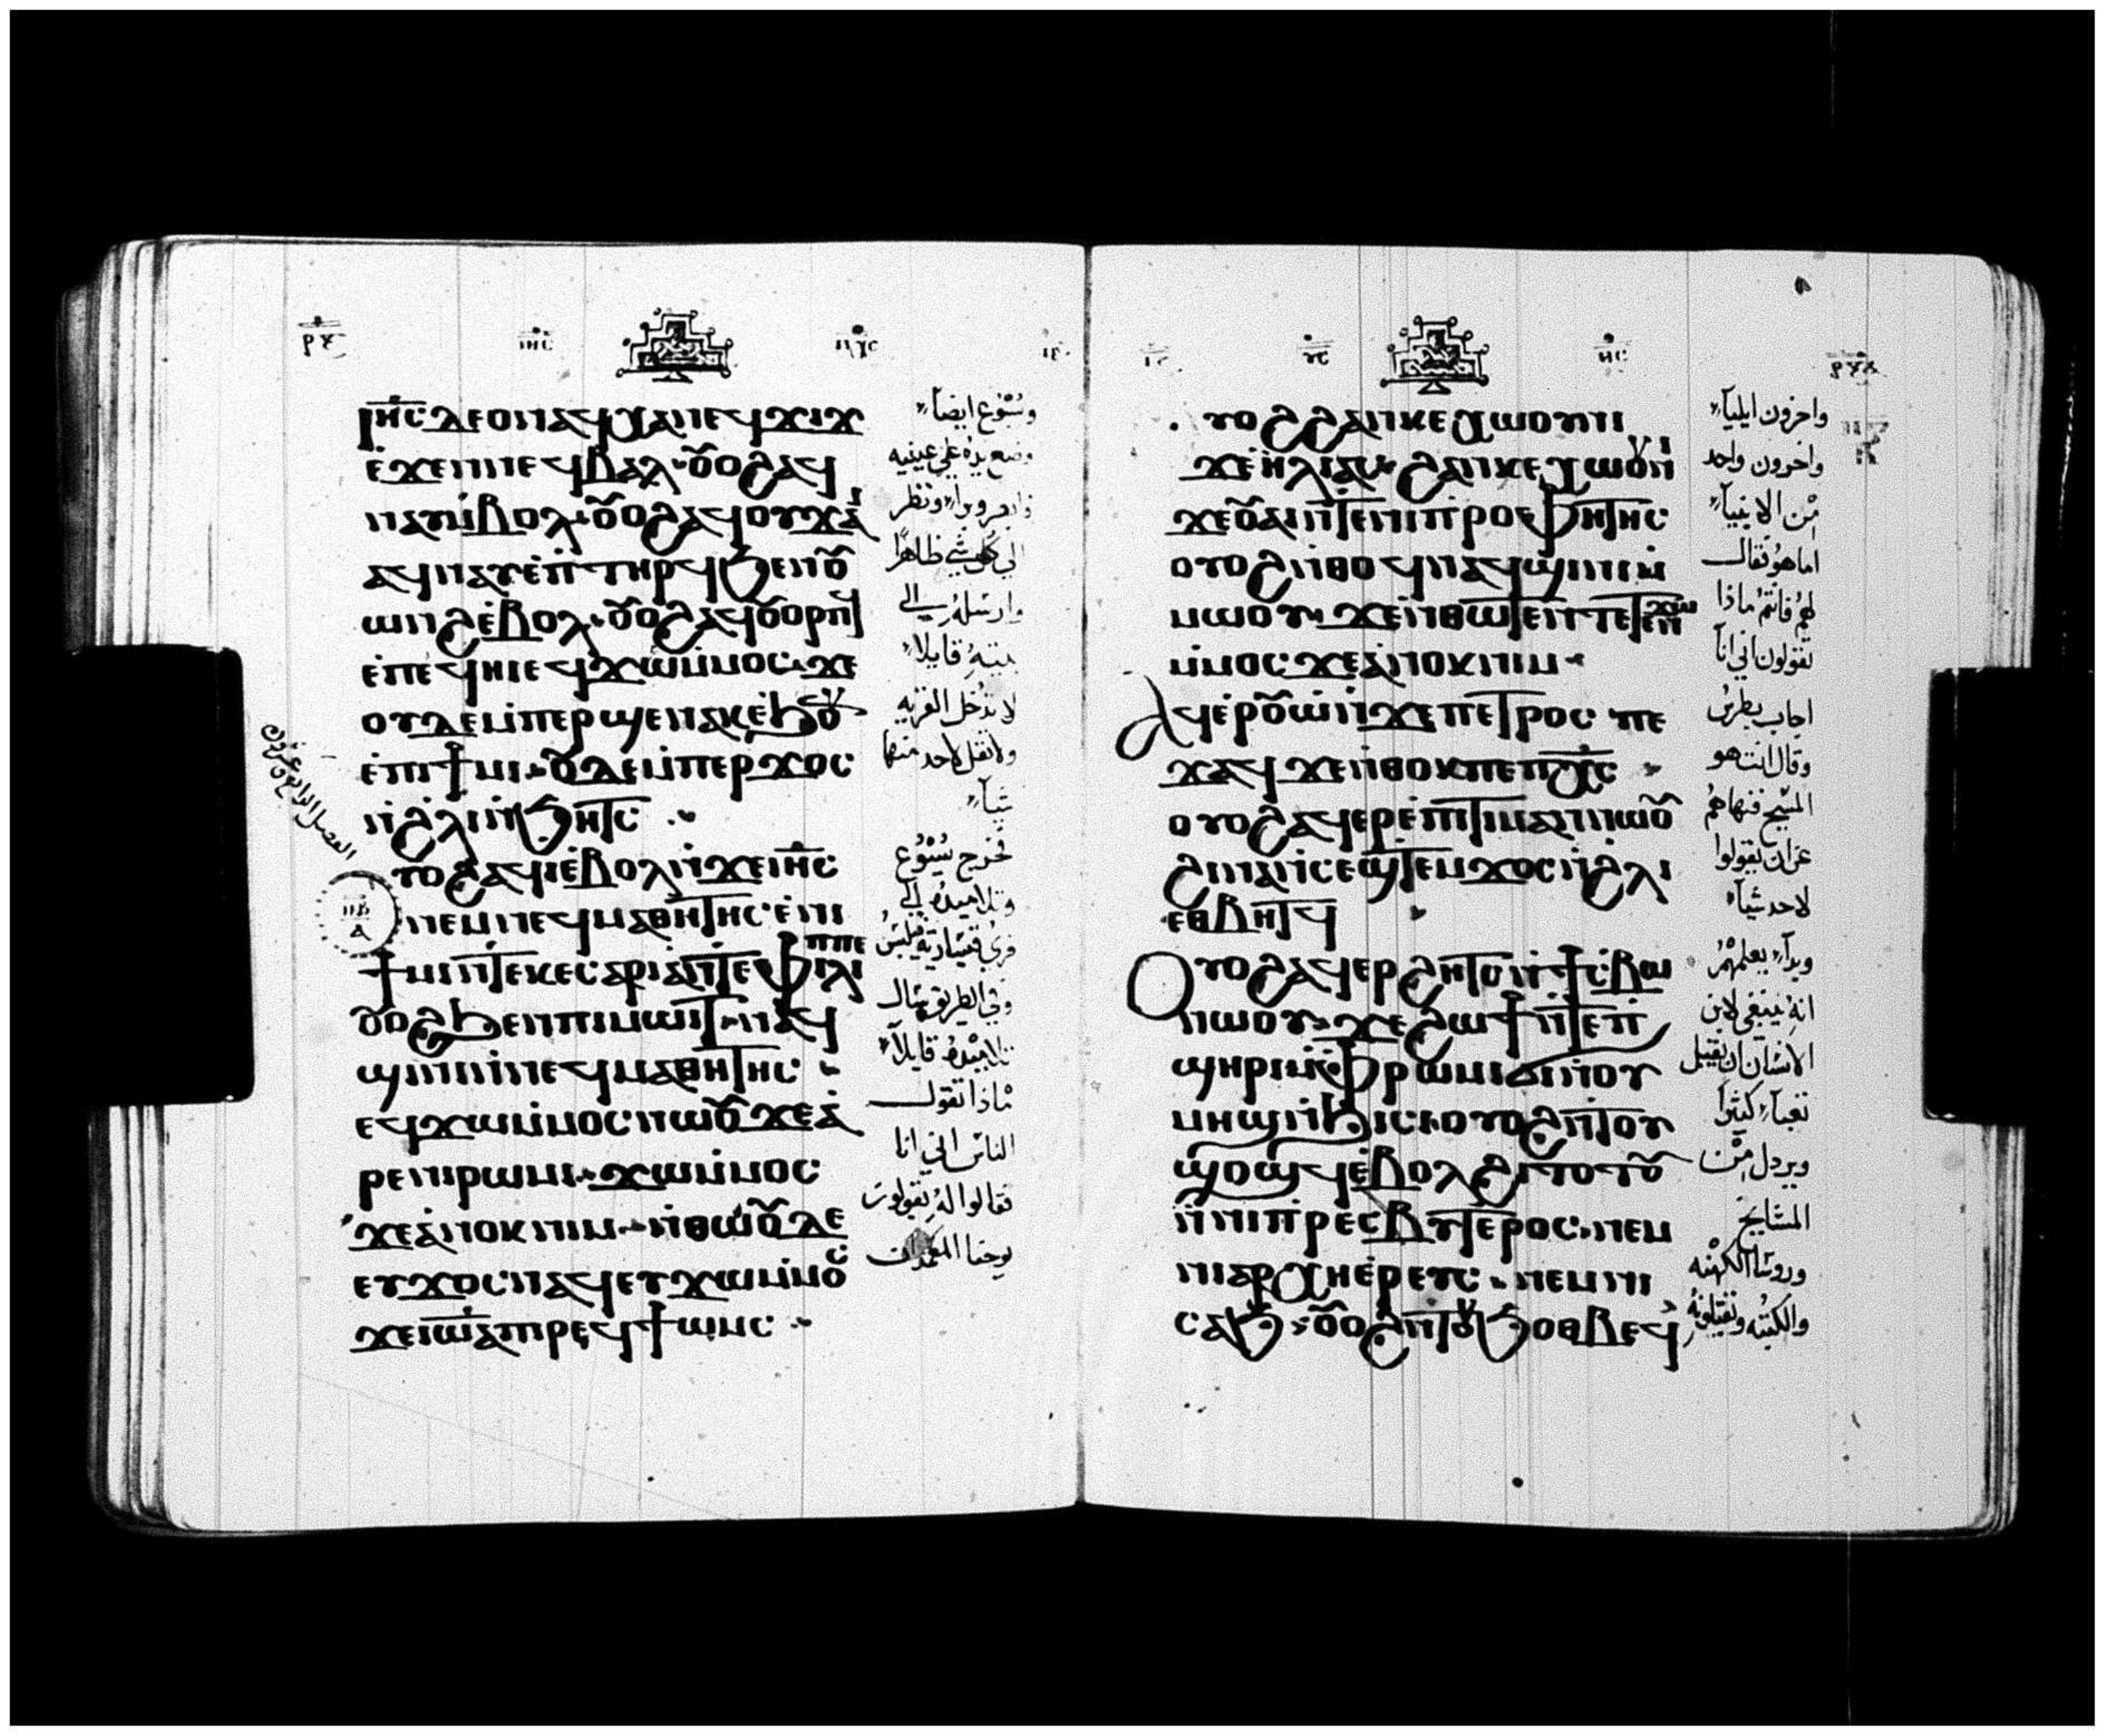 ⲓⲏ̅ⲥ ⲇⲉ ⲟⲛ ⲁϥⲭⲁ ⲛⲉϥϫⲓϫ
ⲉ̇ϫⲉⲛ ⲛⲉϥⲃⲁⲗ ⲟⲩⲟϩ ⲁϥ
ⲛⲁⲩ ⲙ̇ⲃⲟⲗ ⲟⲩⲟϩ ⲁϥⲟⲩϫⲁⲓ
ⲁϥⲛⲁⲩ ⲉ̇ⲡⲧⲏⲣϥ ϧⲉⲛ ⲟⲩ
ⲱⲛϩ ⲉ̇ⲃⲟⲗ ⲟⲩⲟϩ ⲁϥⲟⲩⲟⲣⲡϥ
ⲉ̇ⲡⲉϥⲏⲓ ⲉϥϫⲱ ⲙ̇ⲙⲟⲥ ϫⲉ
ⲟⲩⲇⲉ ⲙ̇ⲡⲉⲣϣⲉⲛⲁⲕ ⲉ̇ϧⲟⲩⲛ
ⲉ̇ⲡⲓϯⲙⲓ ⲟⲩⲇⲉ ⲙ̇ⲡⲉⲣϫⲟⲥ
ⲛ̇ϩⲗⲓ ⲛ̇ϧⲏⲧⲥ
ⲩⲟϩ ⲁϥⲓ̀ ⲉ̇ⲃⲟⲗ ⲛ̇ϫⲉ ⲓⲏ̅ⲥ
ⲛⲉⲙ ⲛⲉϥⲙⲁⲑⲏⲧⲏⲥ ⲉ̇ⲛⲓ
ϯⲙⲓ ⲛ̇ⲧⲉ ⲕⲉⲥⲁⲣⲓⲁ ⲛ̇ⲧⲉ ⲫⲓⲗⲓⲡⲡⲉ
ⲟⲩⲟϩ ϧⲉⲛ ⲡⲓⲙⲱⲓⲧ ⲛⲁϥ
ϣⲓⲛⲓ ⲛ̇ⲛⲉϥⲙⲁⲑⲏⲧⲏⲥ
ⲉϥϫⲱ ⲙ̇ⲙⲟⲥ ⲛⲱⲟⲩ ϫⲉ ⲁ̇
ⲣⲉ ⲛⲓⲣⲱⲙⲓ ϫⲱ ⲙ̇ⲙⲟⲥ
ϫⲉ ⲁ̇ⲛⲟⲕ ⲛⲓⲙ ⲛ̇ⲑⲱⲟⲩ ⲇⲉ
ⲉⲩϫⲟⲥ ⲛⲁϥ ⲉⲩϫⲱ ⲙ̇ⲙⲟⲥ
ϫⲉ ⲓⲱ̅ⲁ ⲡⲓⲣⲉϥϯⲱⲙⲥ
ويسوع ايضاً
وضع يده علي عينيه
ونظر
الي كل شي ظاهراً
وارسله الي
بيته قايلا
لا تدخل القريه
ولا تقل لاحد منها
شياً
فخرج يسوع
وتلاميده الي
قري قيسارية فيلبس
وفي الطريق سال
تلاميده قايلاً
ماذا تقول
الناس اني انا
فقالوا له يقولون
يوحنا المعمدان
ⲩⲟϩ ϩⲁⲛⲕⲉⲭⲱⲟⲩⲛⲓ
ϫⲉ ⲏ̇ⲗⲓⲁⲥ ϩⲁⲛⲕⲉⲭⲱⲟⲩⲛⲓ
ϫⲉ ⲟⲩⲁⲓ ⲛ̇ⲧⲉ ⲛⲓⲡⲣⲟⲫⲏⲧⲏⲥ
ⲟⲩⲟϩ ⲛ̇ⲑⲟϥ ⲛⲁϥϣⲓⲛⲓ ⲙ̇
ⲙⲱⲟⲩ ϫⲉ ⲛ̇ⲑⲱⲧⲉⲛ ⲧⲉⲧⲉⲛϫⲱ
ⲙ̇ⲙⲟⲥ ϫⲉ ⲁ̇ⲛⲟⲕ ⲛⲓⲙ
Ⲁϥⲉⲣⲟⲩⲱ̇ ⲛ̇ϫⲉ ⲡⲉⲧⲣⲟⲥ ⲡⲉ
ϫⲁϥ ϫⲉ ⲛ̇ⲑⲟⲕ ⲡⲉ ⲡⲭ̅ⲥ
ⲟⲩⲟϩ ⲁϥⲉⲣⲉ̇ⲡⲓⲧⲓⲙⲁⲛ ⲛⲱⲟⲩ
ϩⲓⲛⲁ ⲛ̇ⲥⲉϣⲧⲉⲙϫⲟⲥ ⲛ̇ϩⲗⲓ
ⲉⲑⲃⲏⲧϥ
Ⲟⲩⲟϩ ⲁϥⲉⲣϩⲏⲧⲥ ⲛ̇ϯⲥⲃⲱ
ⲛⲱⲟⲩ ϫⲉ ϩⲱϯ ⲛ̇ⲧⲉ ⲡ
ϣⲏⲣⲓ ⲙ̇ⲫⲣⲱⲙⲓ ϭⲓ ⲛ̇ⲟⲩ
ⲙⲏϣ ⲛ̇ϧⲓⲥⲓ ⲟⲩⲟϩ ⲛ̇ⲧⲟⲩ
ϣⲟϣϥ ⲉ̇ⲃⲟⲗ ϩⲓⲧⲟⲧⲟⲩ
ⲛ̇ⲛⲓⲡⲣⲉⲥⲃⲩⲧⲉⲣⲟⲥ ⲛⲉⲙ
ⲛⲓⲁⲣⲭⲏⲉ̇ⲣⲉⲩⲥ ⲛⲉⲙ ⲛⲓ
ⲥⲁϧ ⲟⲩⲟϩ ⲛ̇ⲧⲟⲩϧⲟⲑⲃⲉϥ
واخرون ايلياً
واخرون واحد
من الانبياً
اما هو فقال
لهم فانتم ماذا
تقولون اني انا
اجاب بطرس
وقال انت هو
المسيح فنهاهم
عن ان يقولوا
لاحد شياً
وبدا يعلمهم
انه ينبغي لابن
الانسان ان يقبل
تعباً كثيراً
ويردل من
المشايخ
وروسا الكهنه
والكتبه ويقتلونه